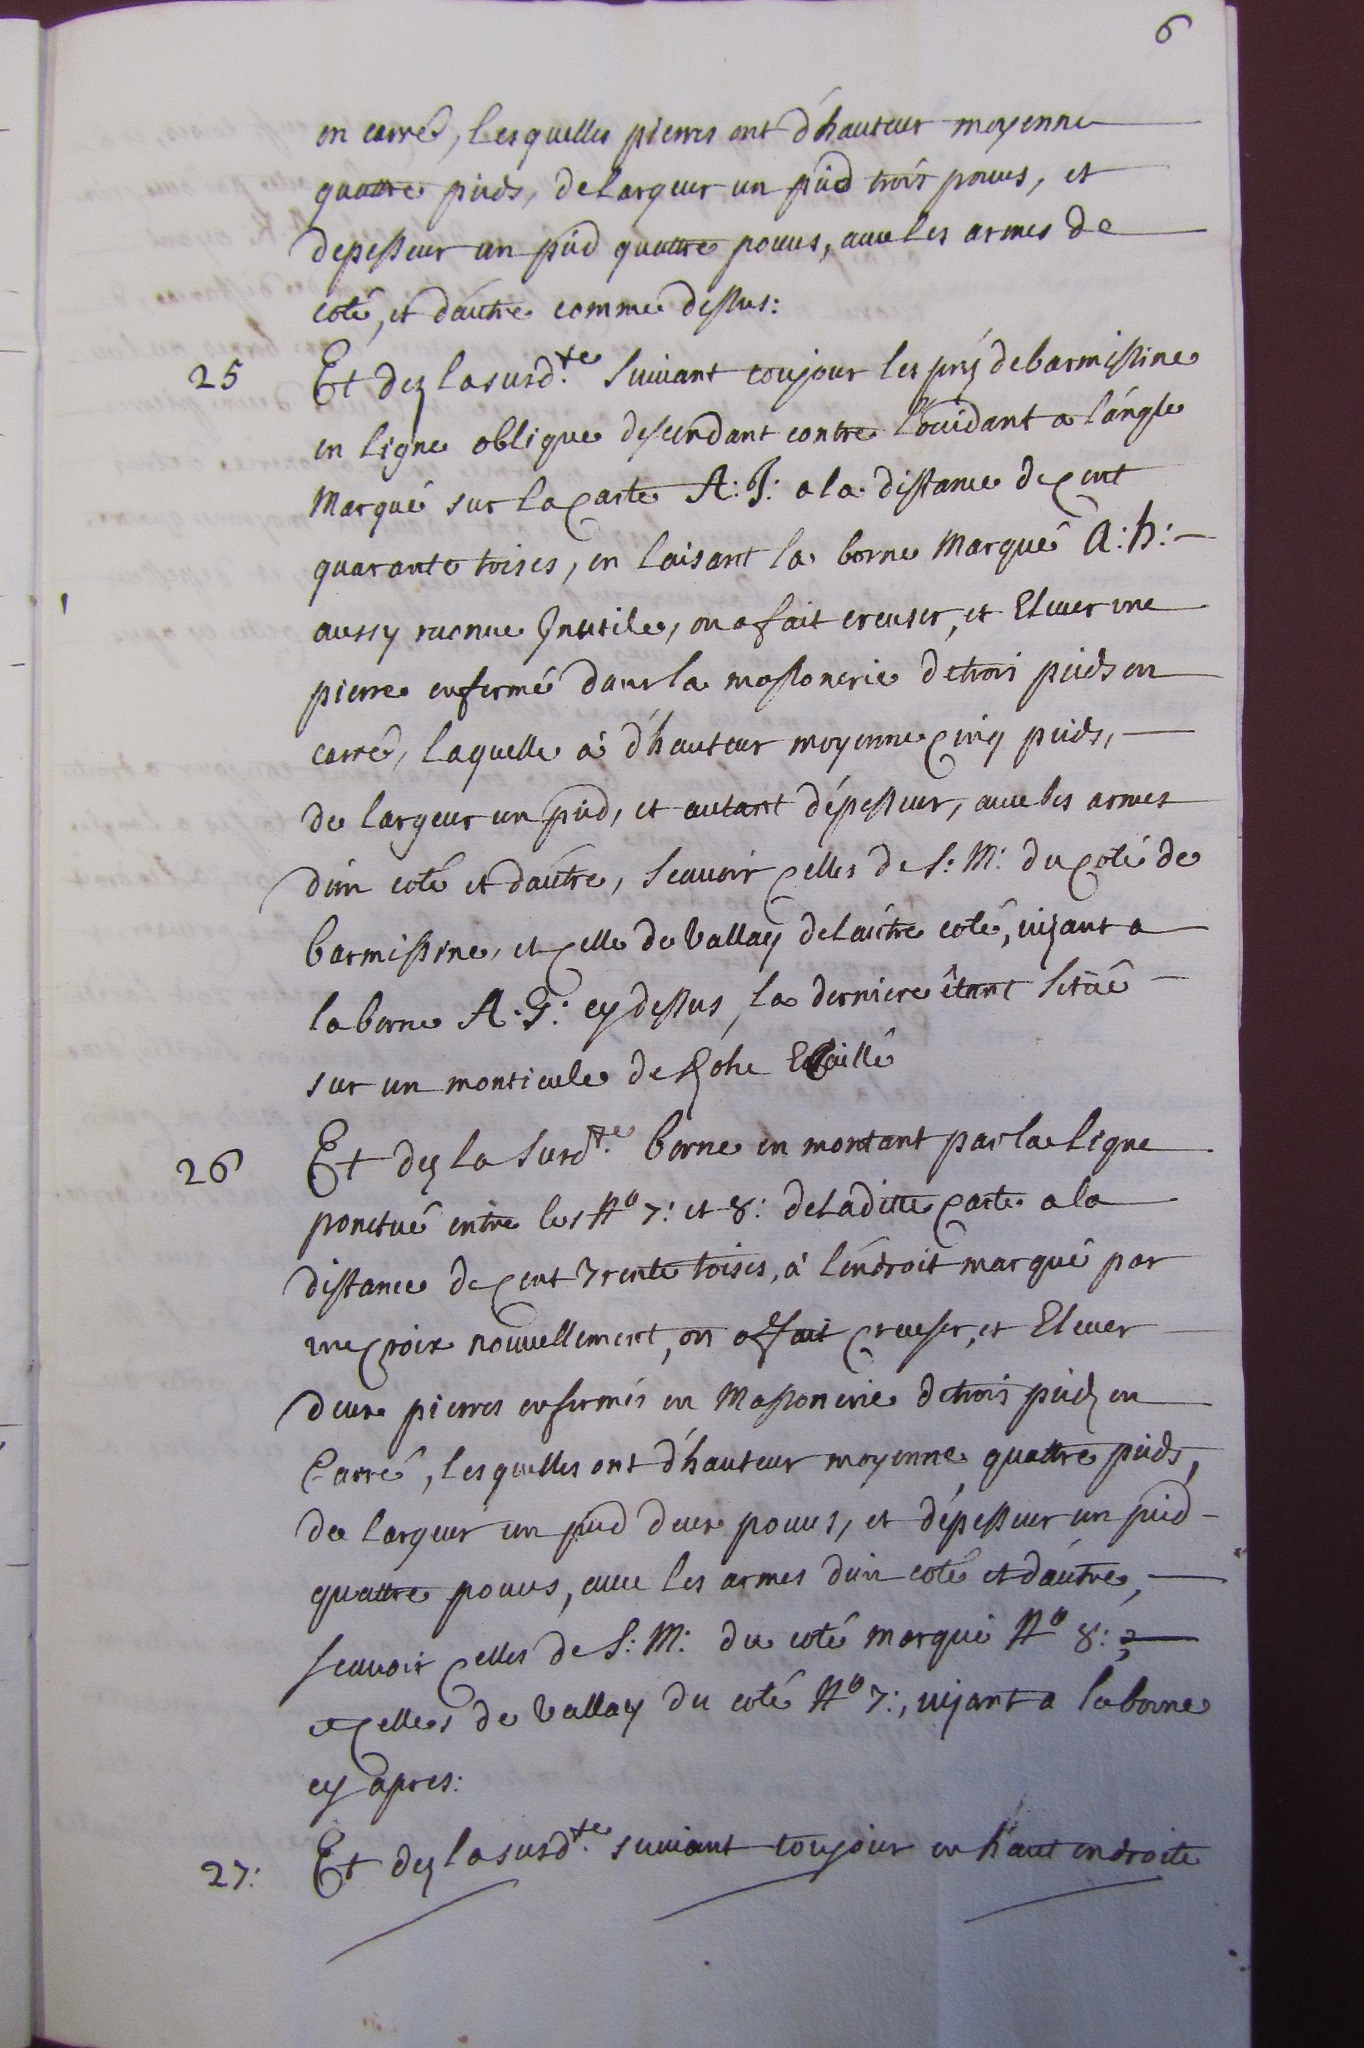 6
en carré, lesquelles pierres ont d'hauteur moyenne
quattre pieds, de largeur un pied trois pouces, et
depesseur un pied quattre pouces, avec les armes de
coté, et d'autre comme dessus:
25 Et dez la susd.te suivant toujour les préz de barmissine
en ligne oblique descendant contre l'occidant a l'angle
Marqué sur la Carte A: J: a la distance de Cent
quarante toises, en laisant la borne Marqué A: h:
aussy reconue Inutile, on a fait creuser, et Elever une
pierre enfermé dans la massonerie de trois pieds en
carré, laquelle a d'hauteur moyenne Cinq pieds,
de largeur un pied, et autant d'épesseur, avec les armes
d'un coté et d'autre, scavoir Celles de S: M: du Coté de
barmissine, et Celle de Vallay de l'autre coté, vizant a
la borne A: G: cy dessus, la derniere étant situé
sur un monticule de Roche Ecaillé
26 Et dez la Susd.te borne en montant par la Ligne
ponctué entre les No 7: et 8: de Laditte Carte a la
distance de Cent Trente toises, à l'endroit marqué par
une Croix nouvellement, on a fait Creuser, et Elever
deux pierres enfermés en Massonerie de trois piedz en
Carré, lesquelles ont d'hauteur moyenne quattre pieds,
de largeur un pied deux pouces, et d'épesseur un pied
quattre pouces, avec les armes d'un coté et d'autre,
scavoir Celles de S: M: du coté marqué No 8:,
et Celles de Vallay du coté No 7:, vizant a la borne
cy apres:
27: Et dez la susd.te suivant toujour en haut en droite